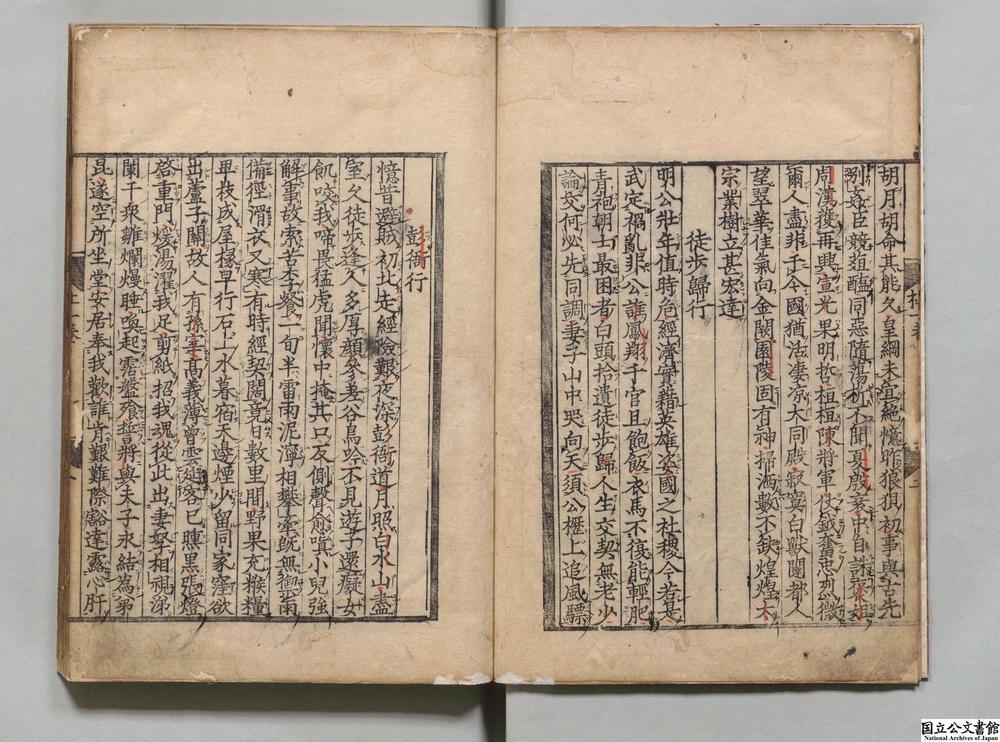 胡月胡命其能久皇綱未宜絶憶昨狼狽初事與古先
別姦臣競葅醢同惡隨蕩析不聞夏殷衰中自誅褒妲
周漢獲再興宣光果明哲桓桓陳將軍仗鉞奮忠烈微
爾人盡非于今國猶活凄涼大同殿寂寞白獸闥都人
望翠華佳氣向金闕園陵固有神掃洒數不缺煌煌太
宗業樹立甚宏達
徒步歸行
明公壯年值時危經濟實藉英雄姿國之社稷今若是
武定禍亂非公誰鳳翔千官且飽飯衣馬不復能輕肥
青袍朝士最困者白頭拾遺徒步歸人生交契無老少
論交何必先同調妻子山中哭向天須公櫪上追風驃
彭衙行
憶昔避賊初北走經險艱夜深彭衙道月照白水山盡
室久徒步逢久多厚顔參差谷鳥吟不見遊子還癡女
飢咬我啼畏猛虎聞懷中掩其口反側聲愈嗔小兒強
解事故索苦李餐一旬半雷雨泥濘相攀牽既無禦雨
備徑滑衣又寒有時經契闊竟日數里間野果充糇糧
卑枝成屋椽早行石上水暮宿天邊煙少留同家窪欲
出蘆子關故人有孫宰高義薄曾雲延客已曛黑張燈
啓重門煖湯濯我足剪紙招我魂從此出妻孥相視涕
闌干衆雛爛熳睡喚起霑盤飧誓將與夫子永結為弟
昆遂空所坐堂安居奉我歡誰肯艱難際豁達露心肝
杜一卷
二
國立公文書館
National Archives of Japan